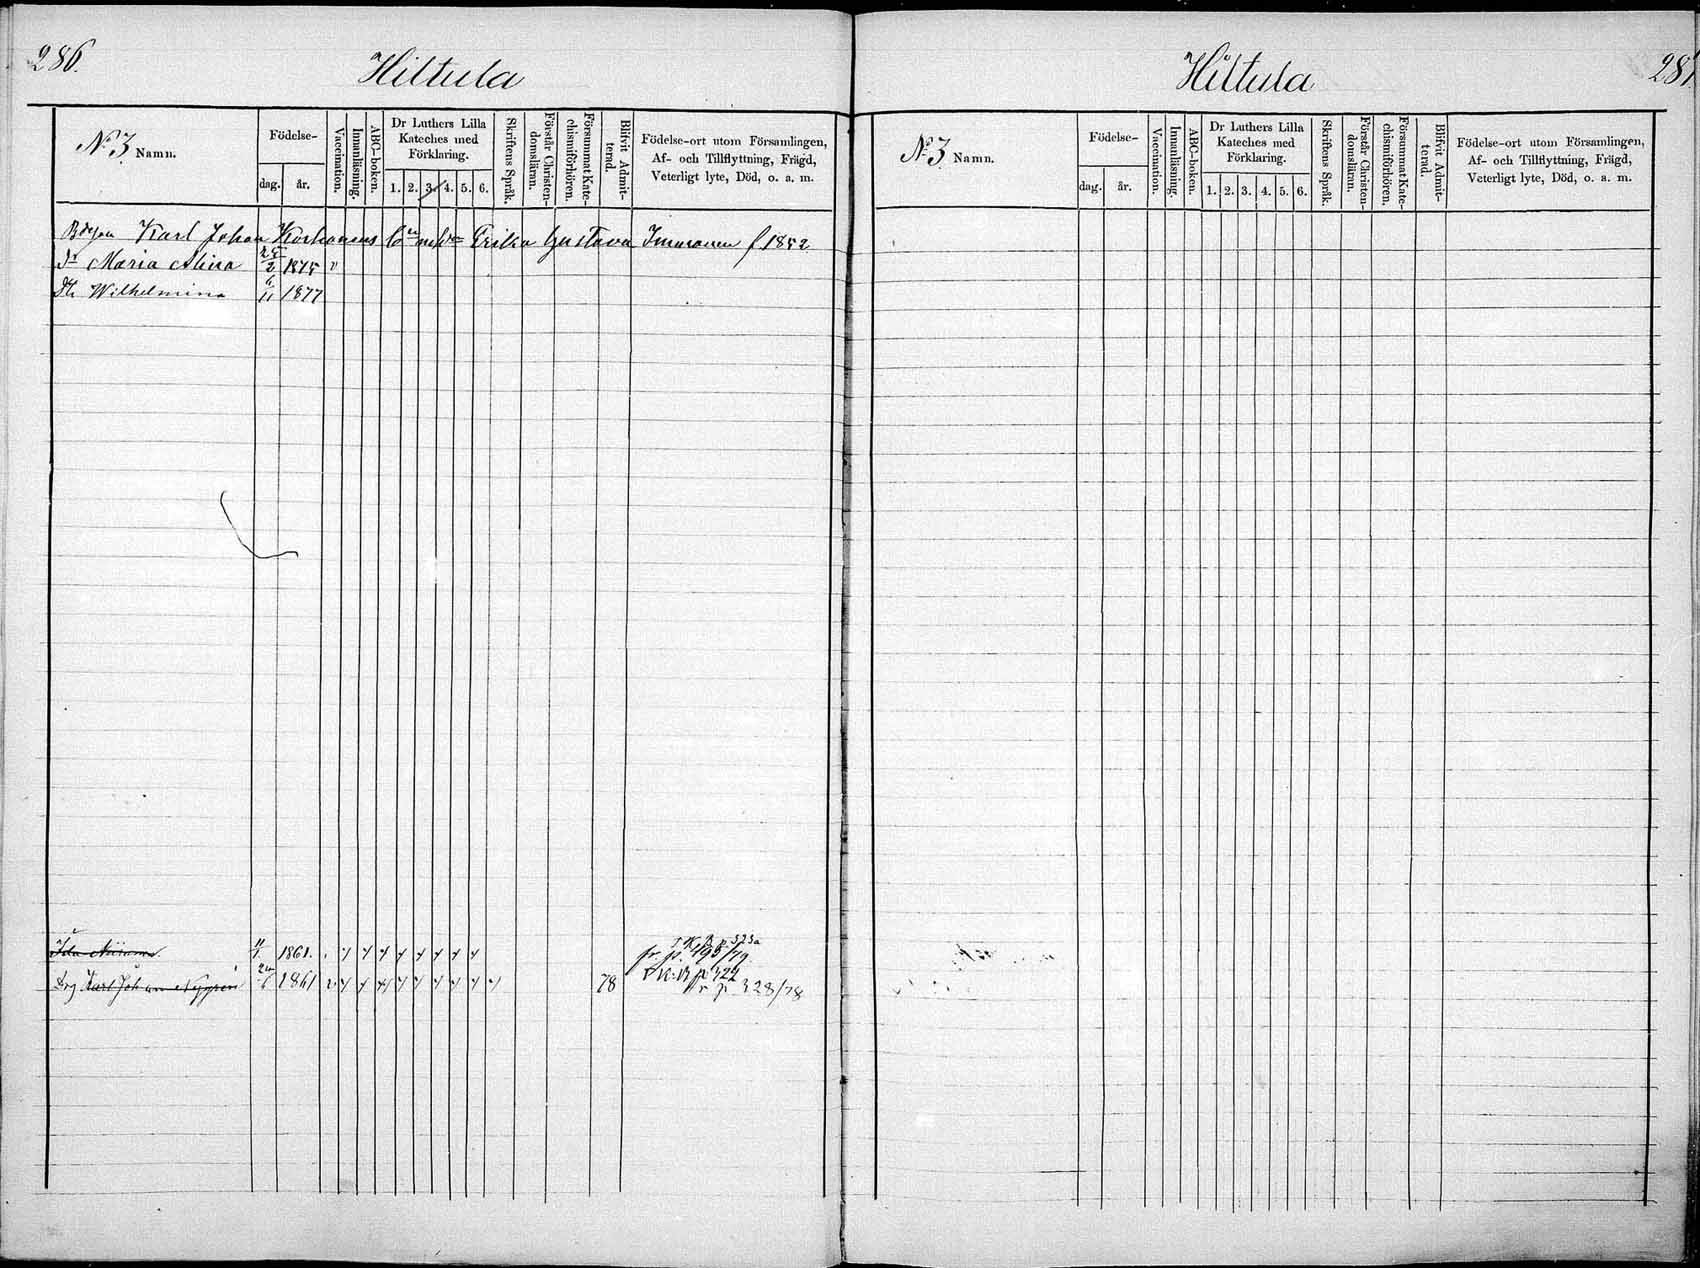 286.
Hiltula
No 3 Namn.
Födelse-
dag.
år.
Vaccination.
Innanläsning.
ABC-boken.
Dr Luthers Lilla
Kateches med
Förklaring.
1. 2. 3. 4. 5. 6.
Skriftens Språk.
Förstår Christen-
domsläran.
Försummat Kate-
chismiförhören.
Blifvit Admit-
terad.
Födelse-ort utom Församlingen,
Af- och Tillflyttning, Frägd,
Veterligt lyte, Död, o. a. m.
Karl Johan Erika Gustava Immonen f 1852
Maria 1875 v
Wilhelmina 6/11 1877
Ida 11/1 1861.
Karl Johan Nygrén 1861 78
328/78
281
Hiltula
No 3 Namn.
Födelse-
dag.
år.
Vaccination.
Innanläsning.
ABC-boken.
Dr Luthers Lilla
Kateches med
Förklaring.
1. 2. 3. 4. 5. 6.
Skriftens Språk.
Förstår Christen-
domsläran.
Försummat Kate-
chismiförhören.
Blifvit Admit-
terad.
Födelse-ort utom Församlingen,
Af- och Tillflyttning, Frägd,
Veterligt lyte, Död, o. a. m.